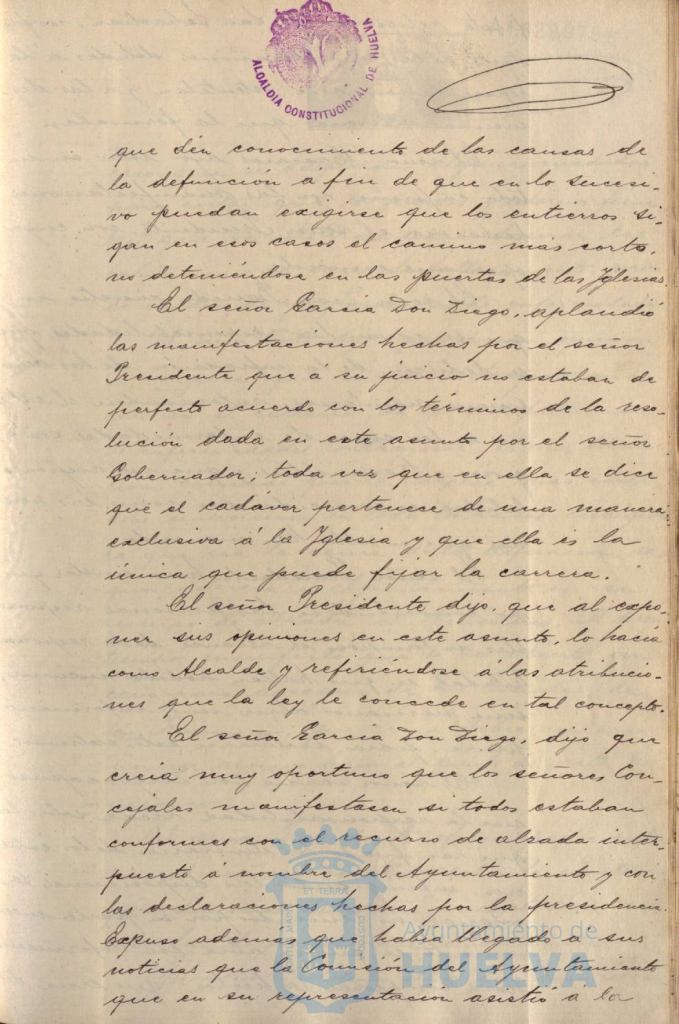 ALCALDIA CONSTITUCIONAL DE HUELVA
que dén conocimiento de las causas de
la defunción á fin de que en lo sucesi-
vo puedan exigirse que los entierros si-
gan en esos casos el camino mas corto,
no deteniéndose en las puertas de las Yglesias.
El señor Garcia Don Diego, aplaudió
las manifestaciones hechas por el señor
Presidente que á su juicio no estaban de
perfecto acuerdo con los términos de la reso-
lución dada en este asunto por el señor
Gobernador; toda vez que en ella se dice
que el cadáver pertenece de una manera
exclusiva á la Yglesia y que ella es la
única que puede fijar la carrera.
El señor Presidente dijo, que al expo-
ner sus opiniones en este asunto, lo hacía
como Alcalde y refiriéndose á las atribucio-
nes que la ley le concede en tal concepto.
El señor Garcia Don Diego, dijo que
creia muy oportuno que los señores Con-
cejales manifestasen si todos estaban
conformes con el recurso de alzada inter-
puesto á nombre del Ayuntamiento y con
las declaraciones hechas por la presidencia.
Expuso además que habia llegado a sus
noticias que la Comisión del Ayuntamiento
que en su representación asistió á la
Ayuntamiento de
HUELVA